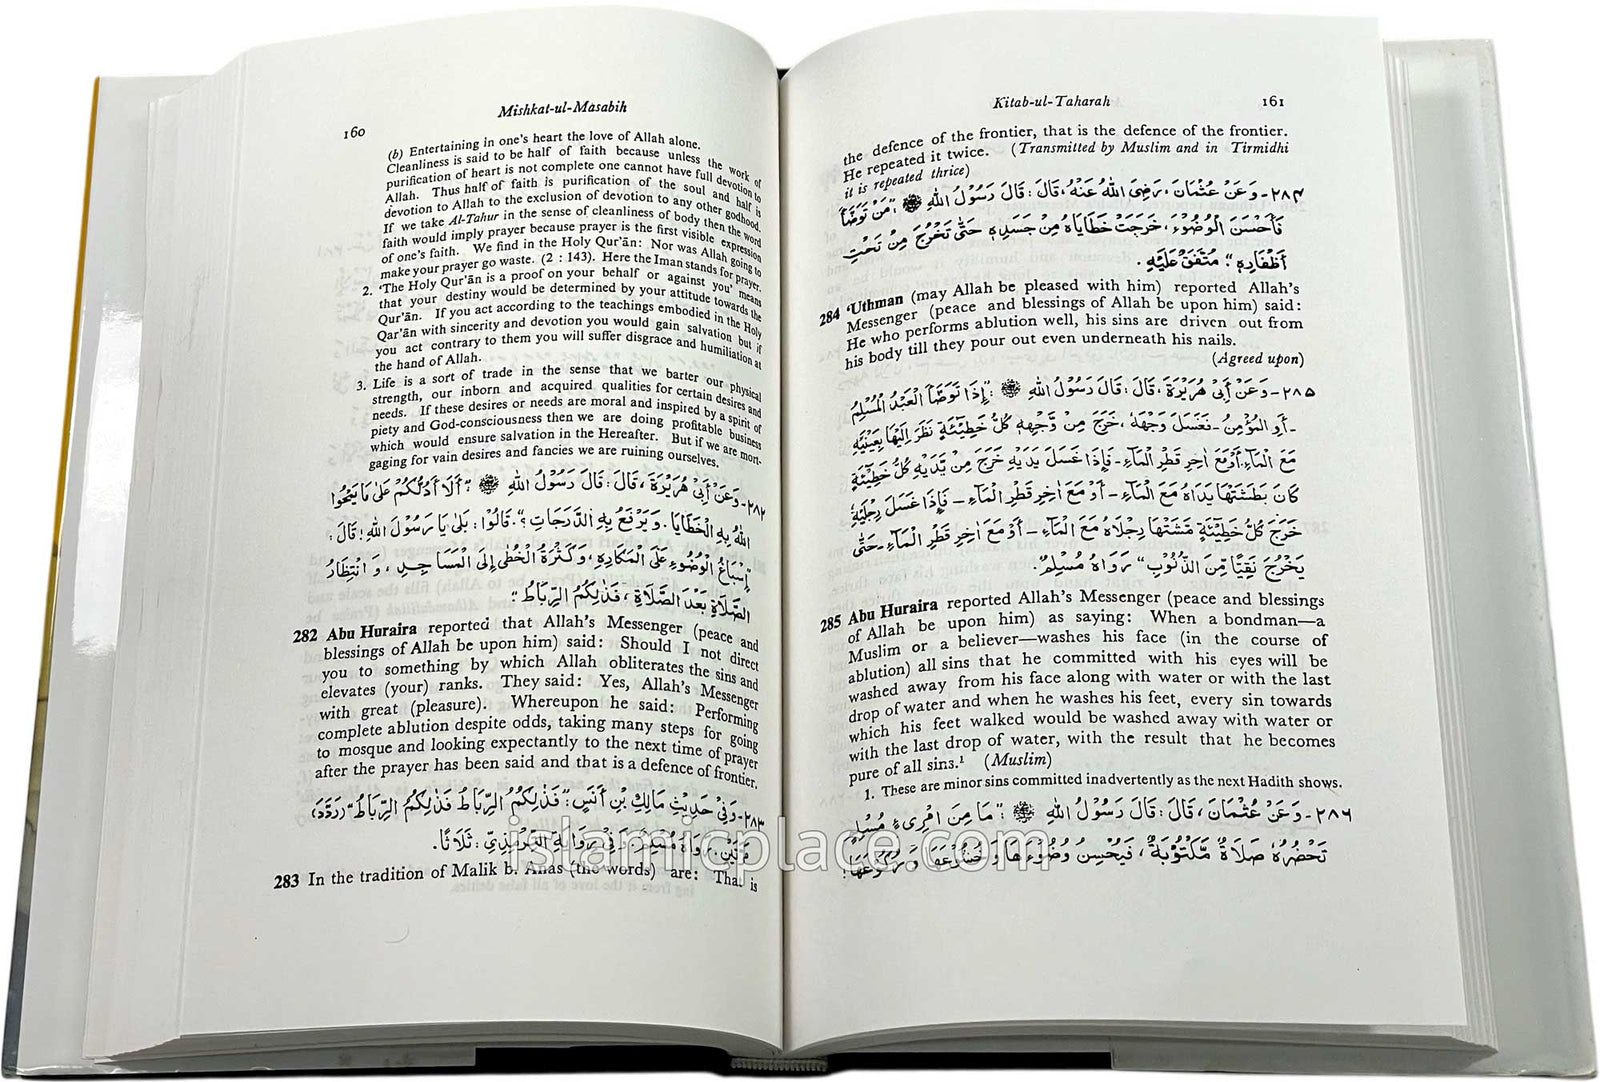 160
Mishkat-ul-Masabih
(b) Entertaining in one's heart the love of Allah alone.
Cleanliness is said to be half of faith because unless the work of
purification of heart is not complete one cannot have full devotion to
Allah. Thus half of faith is purification of the soul and half is
devotion to Allah to the exclusion of devotion to any other godhood.
If we take Al-Tahur in the sense of cleanliness of body then the word
faith would imply prayer because prayer is the first visible expression
of one's faith. We find in the Holy Qur'ān: Nor was Allah going to
make your prayer go waste. (2 : 143). Here the Iman stands for prayer.
2. 'The Holy Qur'ān is a proof on your behalf or against you' means
that your destiny would be determined by your attitude towards the
Qur'ān. If you act according to the teachings embodied in the Holy
Qar'ān with sincerity and devotion you would gain salvation but if
you act contrary to them you will suffer disgrace and humiliation at
the hand of Allah.
3. Life is a sort of trade in the sense that we barter our physical
strength, our inborn and acquired qualities for certain desires and
needs. If these desires or needs are moral and inspired by a spirit of
piety and God-consciousness then we are doing profitable business
which would ensure salvation in the Hereafter. But if we are mort-
gaging for vain desires and fancies we are ruining ourselves.
٢٨٢- وَعَنْ أَبِي هُرَيْرَةَ، قَالَ: قَالَ رَسُوْلُ اللهِ ﷺ: "أَلَا أَدُلُّكُمْ عَلَىٰ مَا يَمْحُوا
اللهُ بِهِ الْخَطَايَا. وَيَرْفَعُ بِهِ الدَّرَجَاتِ؟". قَالُوا: بَلَىٰ يَا رَسُوْلَ اللهِ! قَالَ:
"إِسْبَاغُ الْوُضُوْءِ عَلَى الْمَكَارِهِ، وَكَثْرَةُ الْخُطَى إِلَى الْمَسَاجِدِ، وَانْتِظَارُ
الصَّلَاةِ بَعْدَ الصَّلَاةِ، فَذٰلِكُمُ الرِّبَاطُ"
282 Abu Huraira reported that Allah's Messenger (peace and
blessings of Allah be upon him) said: Should I not direct
you to something by which Allah obliterates the sins and
elevates (your) ranks. They said: Yes, Allah's Messenger
with great (pleasure). Whereupon he said: Performing
complete ablution despite odds, taking many steps for going
to mosque and looking expectantly to the next time of prayer
after the prayer has been said and that is a defence of frontier.
٢٨٣- وَفِي حَدِيْثِ مَالِكِ بْنِ أَنَسٍ: "فَذٰلِكُمُ الرِّبَاطُ فَذٰلِكُمُ الرِّبَاطُ" رَدَّدَ
مَرَّتَيْنِ. رَوَاهُ مُسْلِمٌ. وَفِي رِوَايَةِ التِّرْمِذِيِّ: ثَلَاثًا.
283 In the tradition of Malik b. Anas (the words) are: That is
Kitab-ul-Taharah
161
the defence of the frontier, that is the defence of the frontier.
He repeated it twice. (Transmitted by Muslim and in Tirmidhi
it is repeated thrice)
٢٨٤- وَعَنْ عُثْمَانَ، رَضِيَ اللهُ عَنْهُ، قَالَ: قَالَ رَسُوْلُ اللهِ ﷺ: "مَنْ تَوَضَّأَ
فَأَحْسَنَ الْوُضُوْءَ، خَرَجَتْ خَطَايَاهُ مِنْ جَسَدِهِ حَتَّى تَخْرُجَ مِنْ تَحْتِ
أَظْفَارِهِ" مُتَّفَقٌ عَلَيْهِ.
284 'Uthman (may Allah be pleased with him) reported Allah's
Messenger (peace and blessings of Allah be upon him) said:
He who performs ablution well, his sins are driven out from
his body till they pour out even underneath his nails.
(Agreed upon)
٢٨٥- وَعَنْ أَبِي هُرَيْرَةَ، قَالَ: قَالَ رَسُوْلُ اللهِ ﷺ: "إِذَا تَوَضَّأَ الْعَبْدُ الْمُسْلِمُ
-أَوِ الْمُؤْمِنُ- فَغَسَلَ وَجْهَهُ، خَرَجَ مِنْ وَجْهِهِ كُلُّ خَطِيْئَةٍ نَظَرَ إِلَيْهَا بِعَيْنَيْهِ
مَعَ الْمَاءِ، أَوْ مَعَ اٰخِرِ قَطْرِ الْمَاءِ- فَإِذَا غَسَلَ يَدَيْهِ خَرَجَ مِنْ يَدَيْهِ كُلُّ خَطِيْئَةٍ
كَانَ بَطَشَتْهَا يَدَاهُ مَعَ الْمَاءِ- أَوْ مَعَ اٰخِرِ قَطْرِ الْمَاءِ- فَإِذَا غَسَلَ رِجْلَيْهِ
خَرَجَ كُلُّ خَطِيْئَةٍ مَشَتْهَا رِجْلَاهُ مَعَ الْمَاءِ- أَوْ مَعَ اٰخِرِ قَطْرِ الْمَاءِ- حَتَّى
يَخْرُجَ نَقِيًّا مِنَ الذُّنُوْبِ" رَوَاهُ مُسْلِمٌ.
285 Abu Huraira reported Allah's Messenger (peace and blessings
of Allah be upon him) as saying: When a bondman—a
Muslim or a believer—washes his face (in the course of
ablution) all sins that he committed with his eyes will be
washed away from his face along with water or with the last
drop of water and when he washes his feet, every sin towards
which his feet walked would be washed away with water or
with the last drop of water, with the result that he becomes
pure of all sins.¹ (Muslim)
1. These are minor sins committed inadvertently as the next Hadith shows.
٢٨٦- وَعَنْ عُثْمَانَ، قَالَ: قَالَ رَسُوْلُ اللهِ ﷺ: "مَا مِنِ امْرِئٍ مُسْلِمٍ
تَحْضُرُهُ صَلَاةٌ مَكْتُوْبَةٌ، فَيُحْسِنُ وُضُوْءَهَا وَخُشُوْعَهَا وَرُكُوْعَهَا،
islamicplace.com